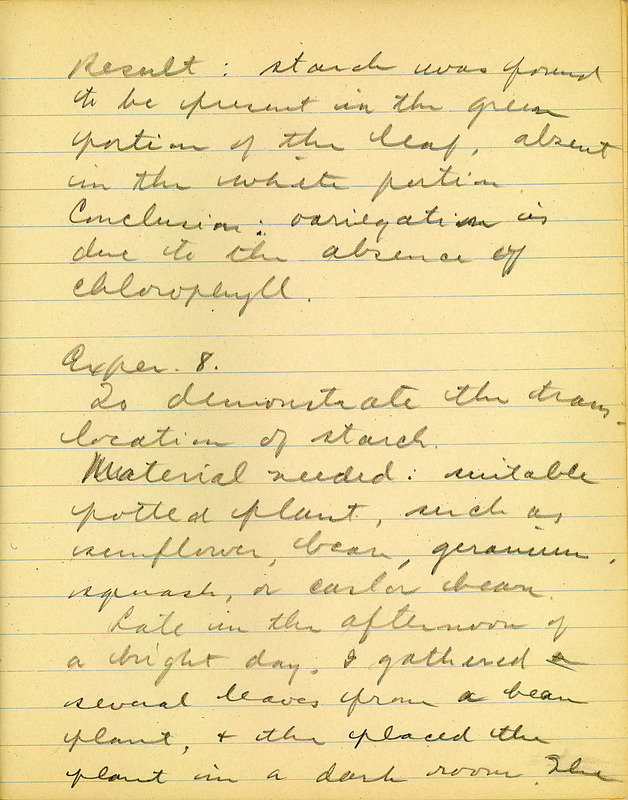 Result : starch was found
to be present in the green
portion of the leaf, absent
in the white portion.
Conclusion : variegation is
due to the absence of
chlorophyll.
Exper. 8.
To demonstrate the trans-
location of starch.
Material needed : suitable
potted plant, such as
sunflower, bean, geranium,
squash, or castor bean.
Late in the afternoon of
a bright day, I gathered a
several leaves from a bean
plant, & the placed the
plant in a dark room. The